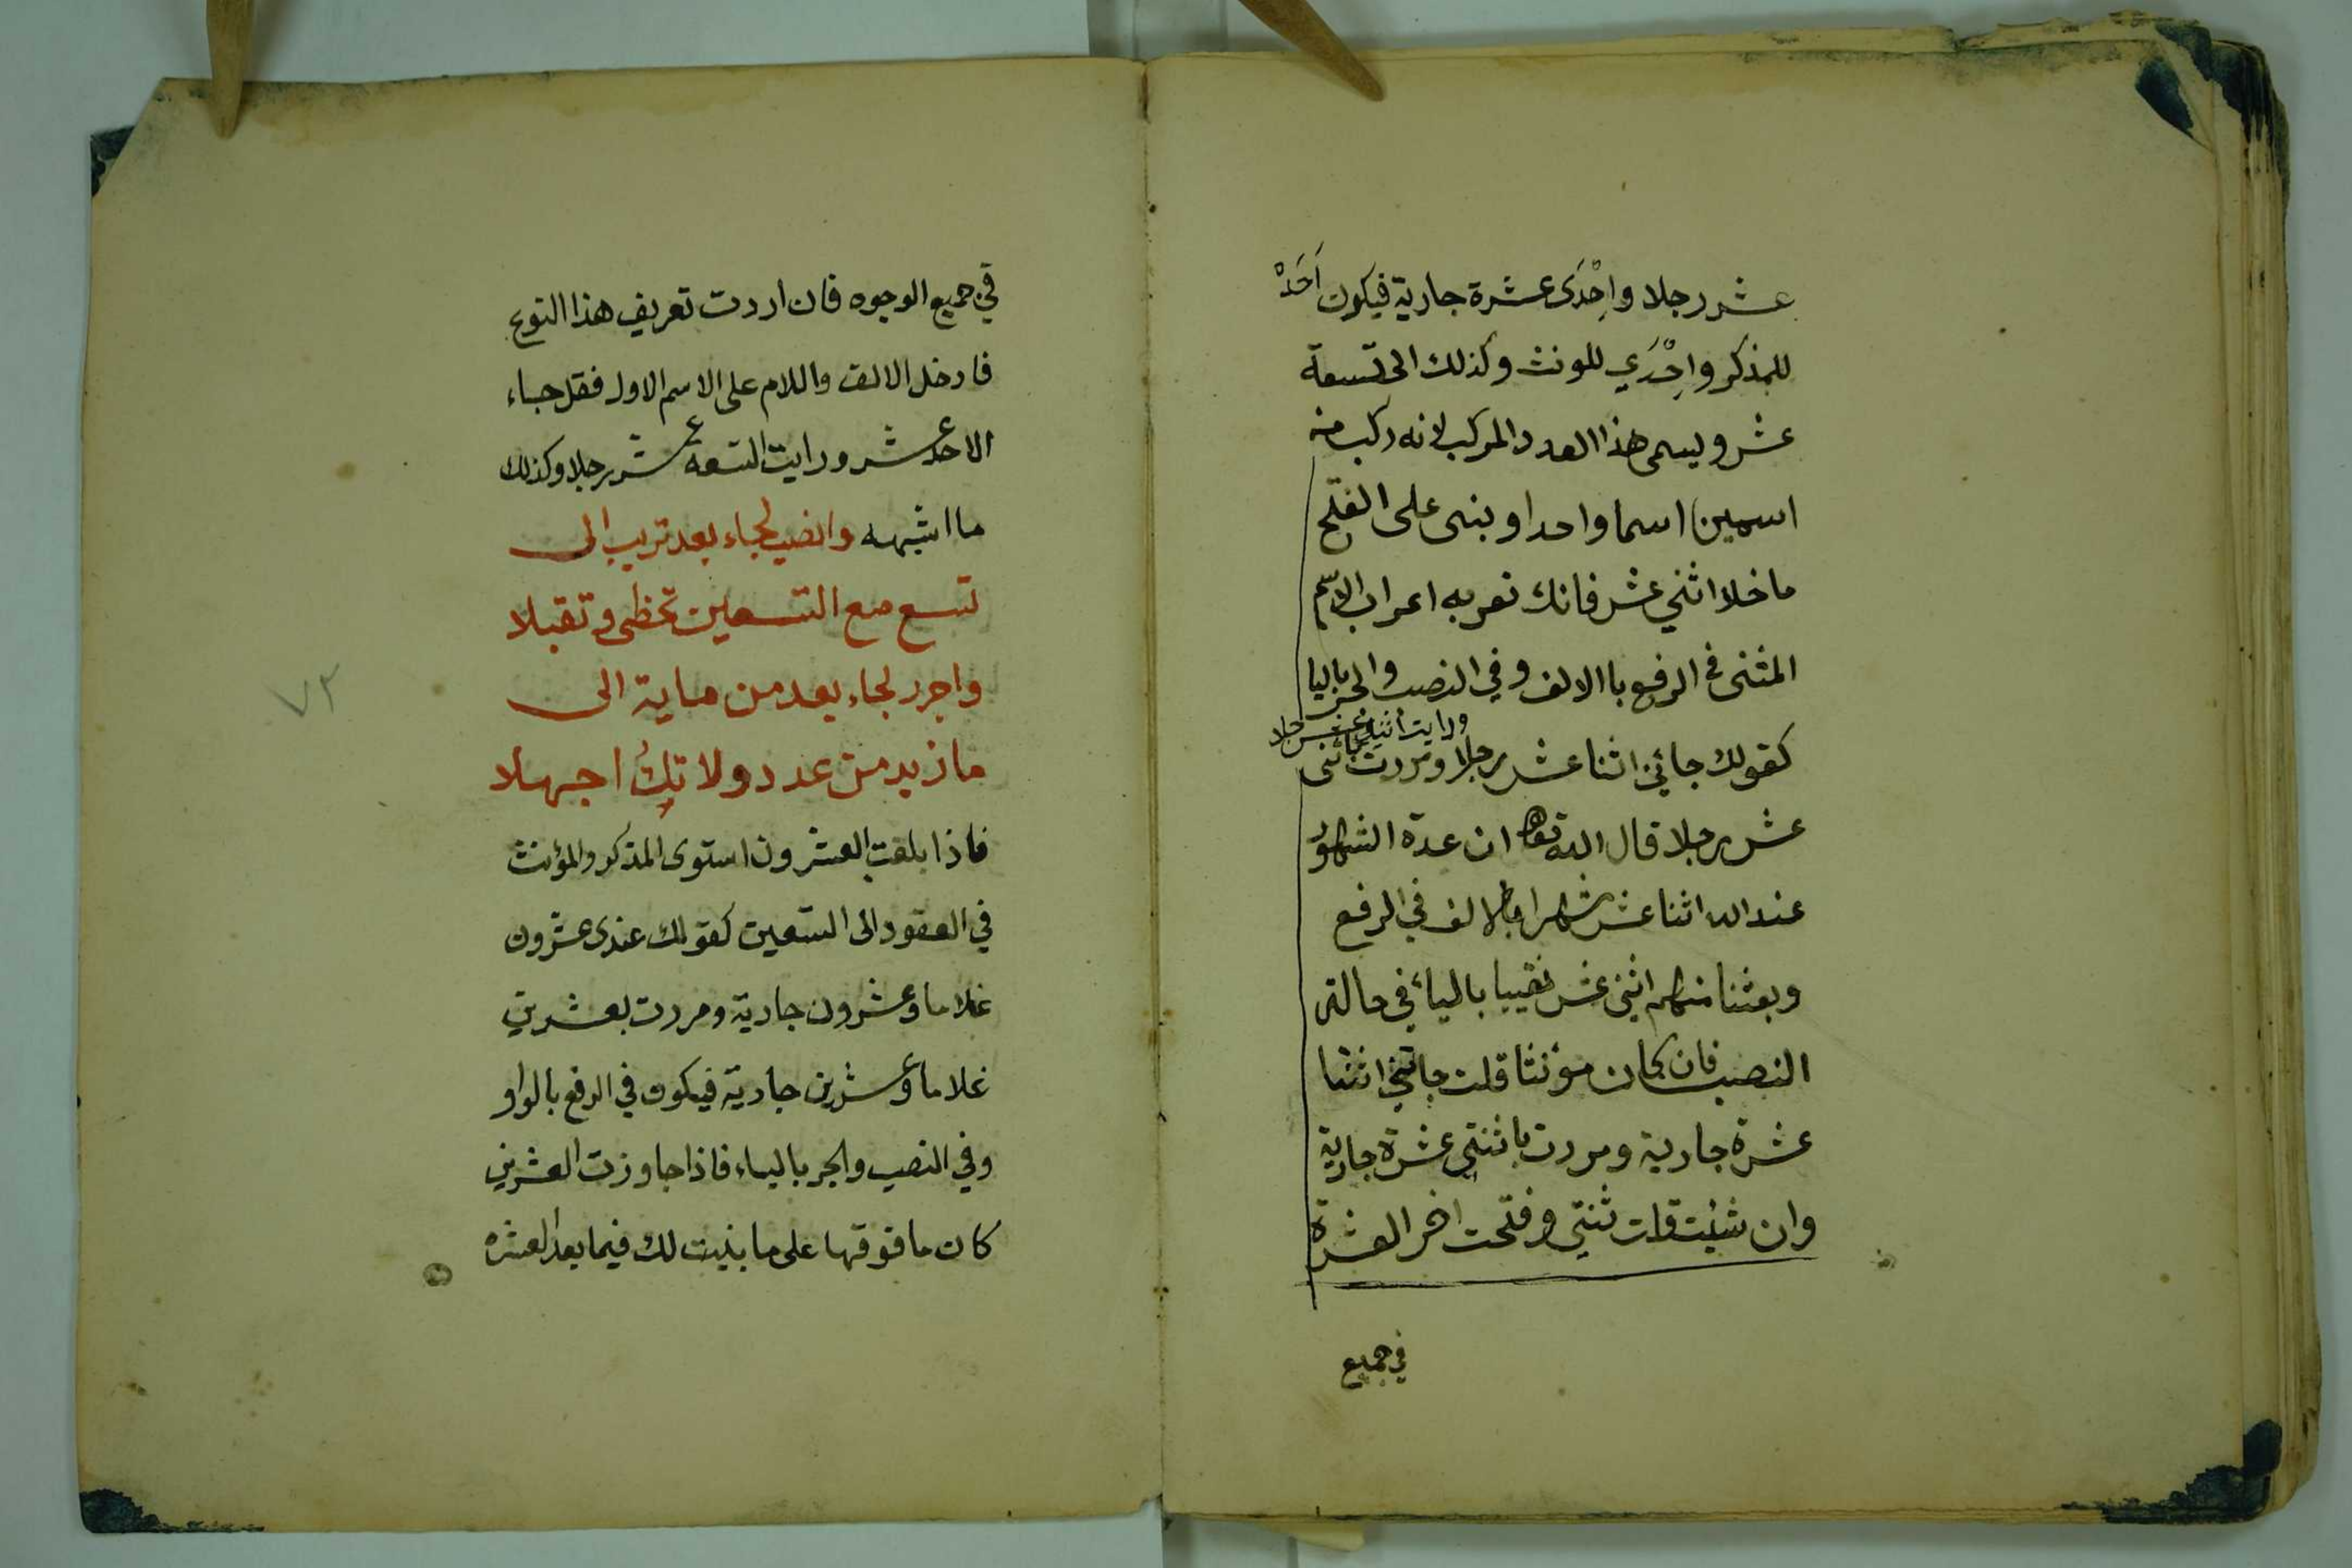 عشر رجلا واِحْدَى عشرة جارية فيكون اَحَدْ
للمذكر واِحْدَي للمونث وكذلك الى تسعة
عشر ويسمى هذا العدد المركب لانه ركب من
اسمين اسما واحدا وبنى على الفتح
ما خلا اثني عشر فانك تعربه اعراب الاسم
المثنى في الرفع باالالف وفي النصب والجر باليا
ورايت اثني عشر رجلا
كقولك جائني اثنا عشر رجلا ومررت باثنى
عشر رجلا قال الله تعا ان عدة الشهور
عند الله اثنا عشر شهرا بالالف في الرفع
وبعثنا منهم اثني عشر نقيبا بالياء في حالة
النصب فان كان مؤنثا قلت جائتني اثنتا
عشرة جارية ومررت باثنتي عشرة جارية
وان شئت قلت ثنتي وفتحت اخر العشرة
في جميع
في جميع الوجوه فان اردت تعريف هذا النوع
فادخل الالف واللام على الاسم الاول فقل جاء
الاحد عشر ورايت التسعه عشر رجلا وكذلك
ما اشبهه وانصب لجاء بعد تريب الى
تسع مع التسعين تحظى وتقبلا
واجرر لجاء بعد من ماية الى
ما زيد من عدد ولا تكُ اجهلا
فاذا بلغت العشرون استوى المذكر والمؤنث
في العقود الى التسعين كقولك عندى عشرون
غلاما وعشرون جارية ومررت بعشرين
غلاما وعشرين جارية فيكون في الرفع بالواو
وفي النصب والجر بالياء فاذا جاوزت العشرين
كان ما فوقها على ما بنيت لك فيما بعد العشره
٧٢